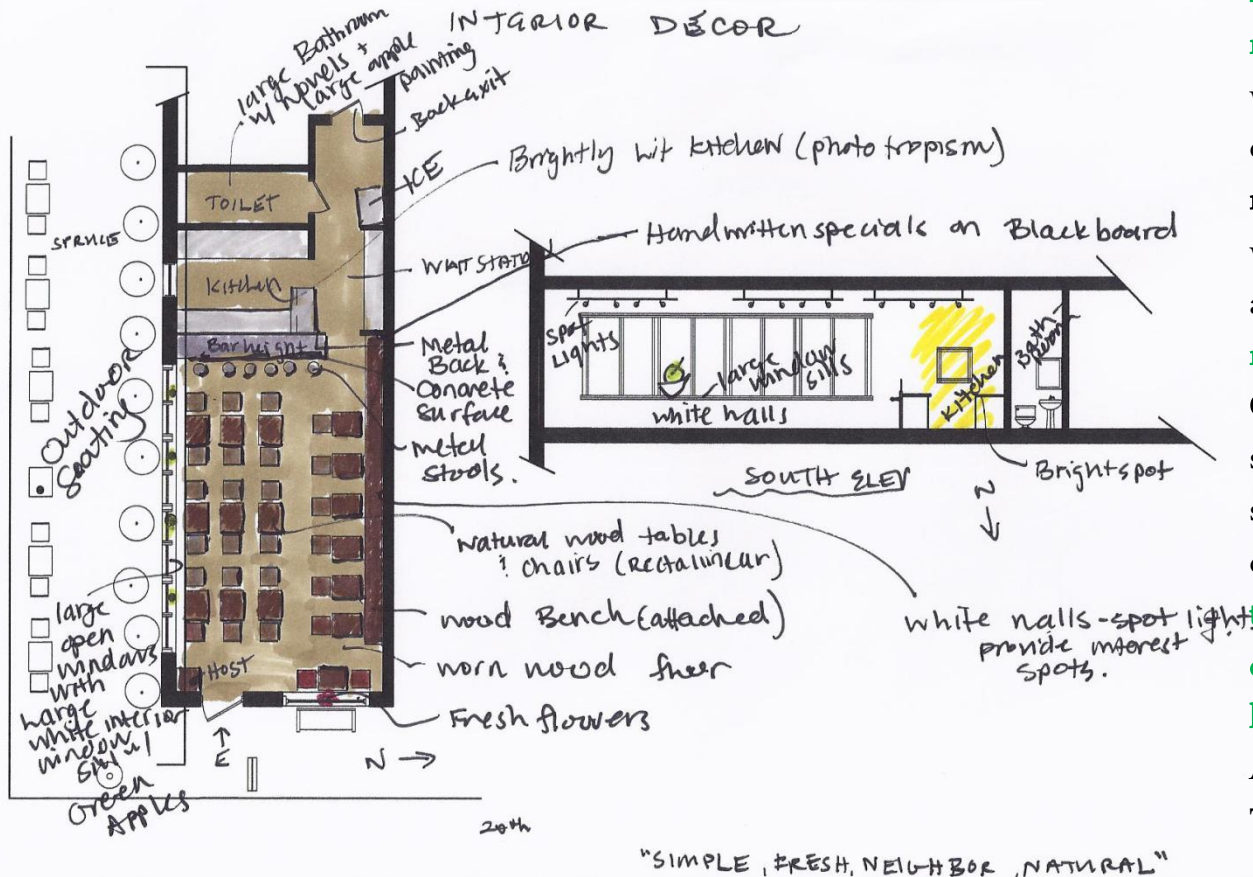 INTERIOR DÉCOR
large Bathroom
w/ novels +
large apple
painting
Back exit
ICE
Brightly lit kitchen (phototropism)
TOILET
SPRUCE
Handwritten specials on Blackboard
WAIT STATION
Kitchen
Bar height
Metal
Back &
Concrete
surface
metal
stools.
Outdoor
Seating
spot
Lights
large window
sills
white walls
Kitchen
Bath
room
SOUTH ELEV
Bright spot
N
Natural wood tables
& chairs (rectalinear)
wood Bench (attached)
worn wood floor
white walls - spot lights
provide interest
spots.
large
open
windows
with
large
white interior
window
sill w/
Green
Apples
HOST
Fresh flowers
E
N →
20th
"SIMPLE, FRESH, NEIGHBOR, NATURAL"